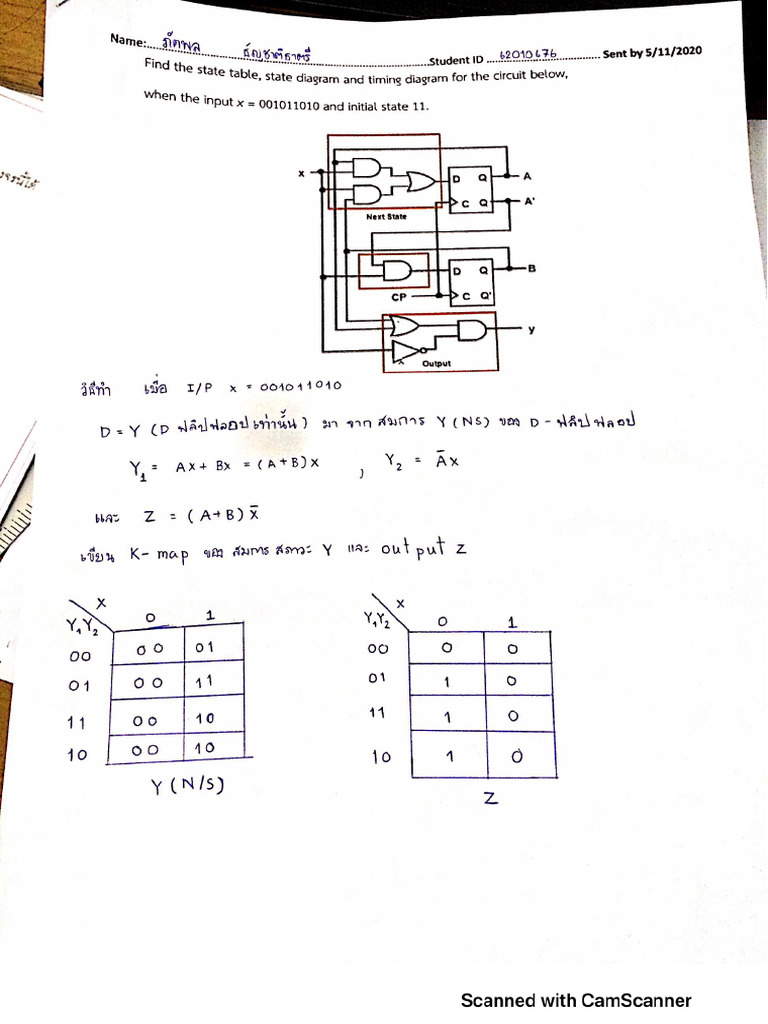 Name: ภัคพล ธัญชาติธาตรี Student ID 62010676 Sent by 5/11/2020
Find the state table, state diagram and timing diagram for the circuit below,
when the input x = 001011010 and initial state 11.
x
D Q A
C Q A'
Next State
D Q B
CP C Q'
y
Output
วิธีทำ เมื่อ I/P x = 001011010
D = Y (D ฟลิปฟลอปเท่านั้น) มา จาก สมการ Y (NS) ของ D - ฟลิปฟลอป
Y₁ = Ax + Bx = (A+B)x , Y₂ = A̅x
และ Z = (A+B)x̅
เขียน K-map ของ สมการ สภาวะ Y และ output Z
X X
Y₁Y₂ 0 1 Y₁Y₂ 0 1
00 00 01 00 0 0
01 00 11 01 1 0
11 00 10 11 1 0
10 00 10 10 1 0
Y (N/S) Z
Scanned with CamScanner